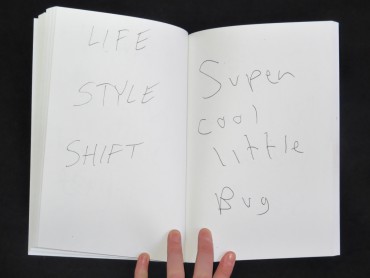 LIFE
STYLE
SHIFT
Super
cool
little
Bug